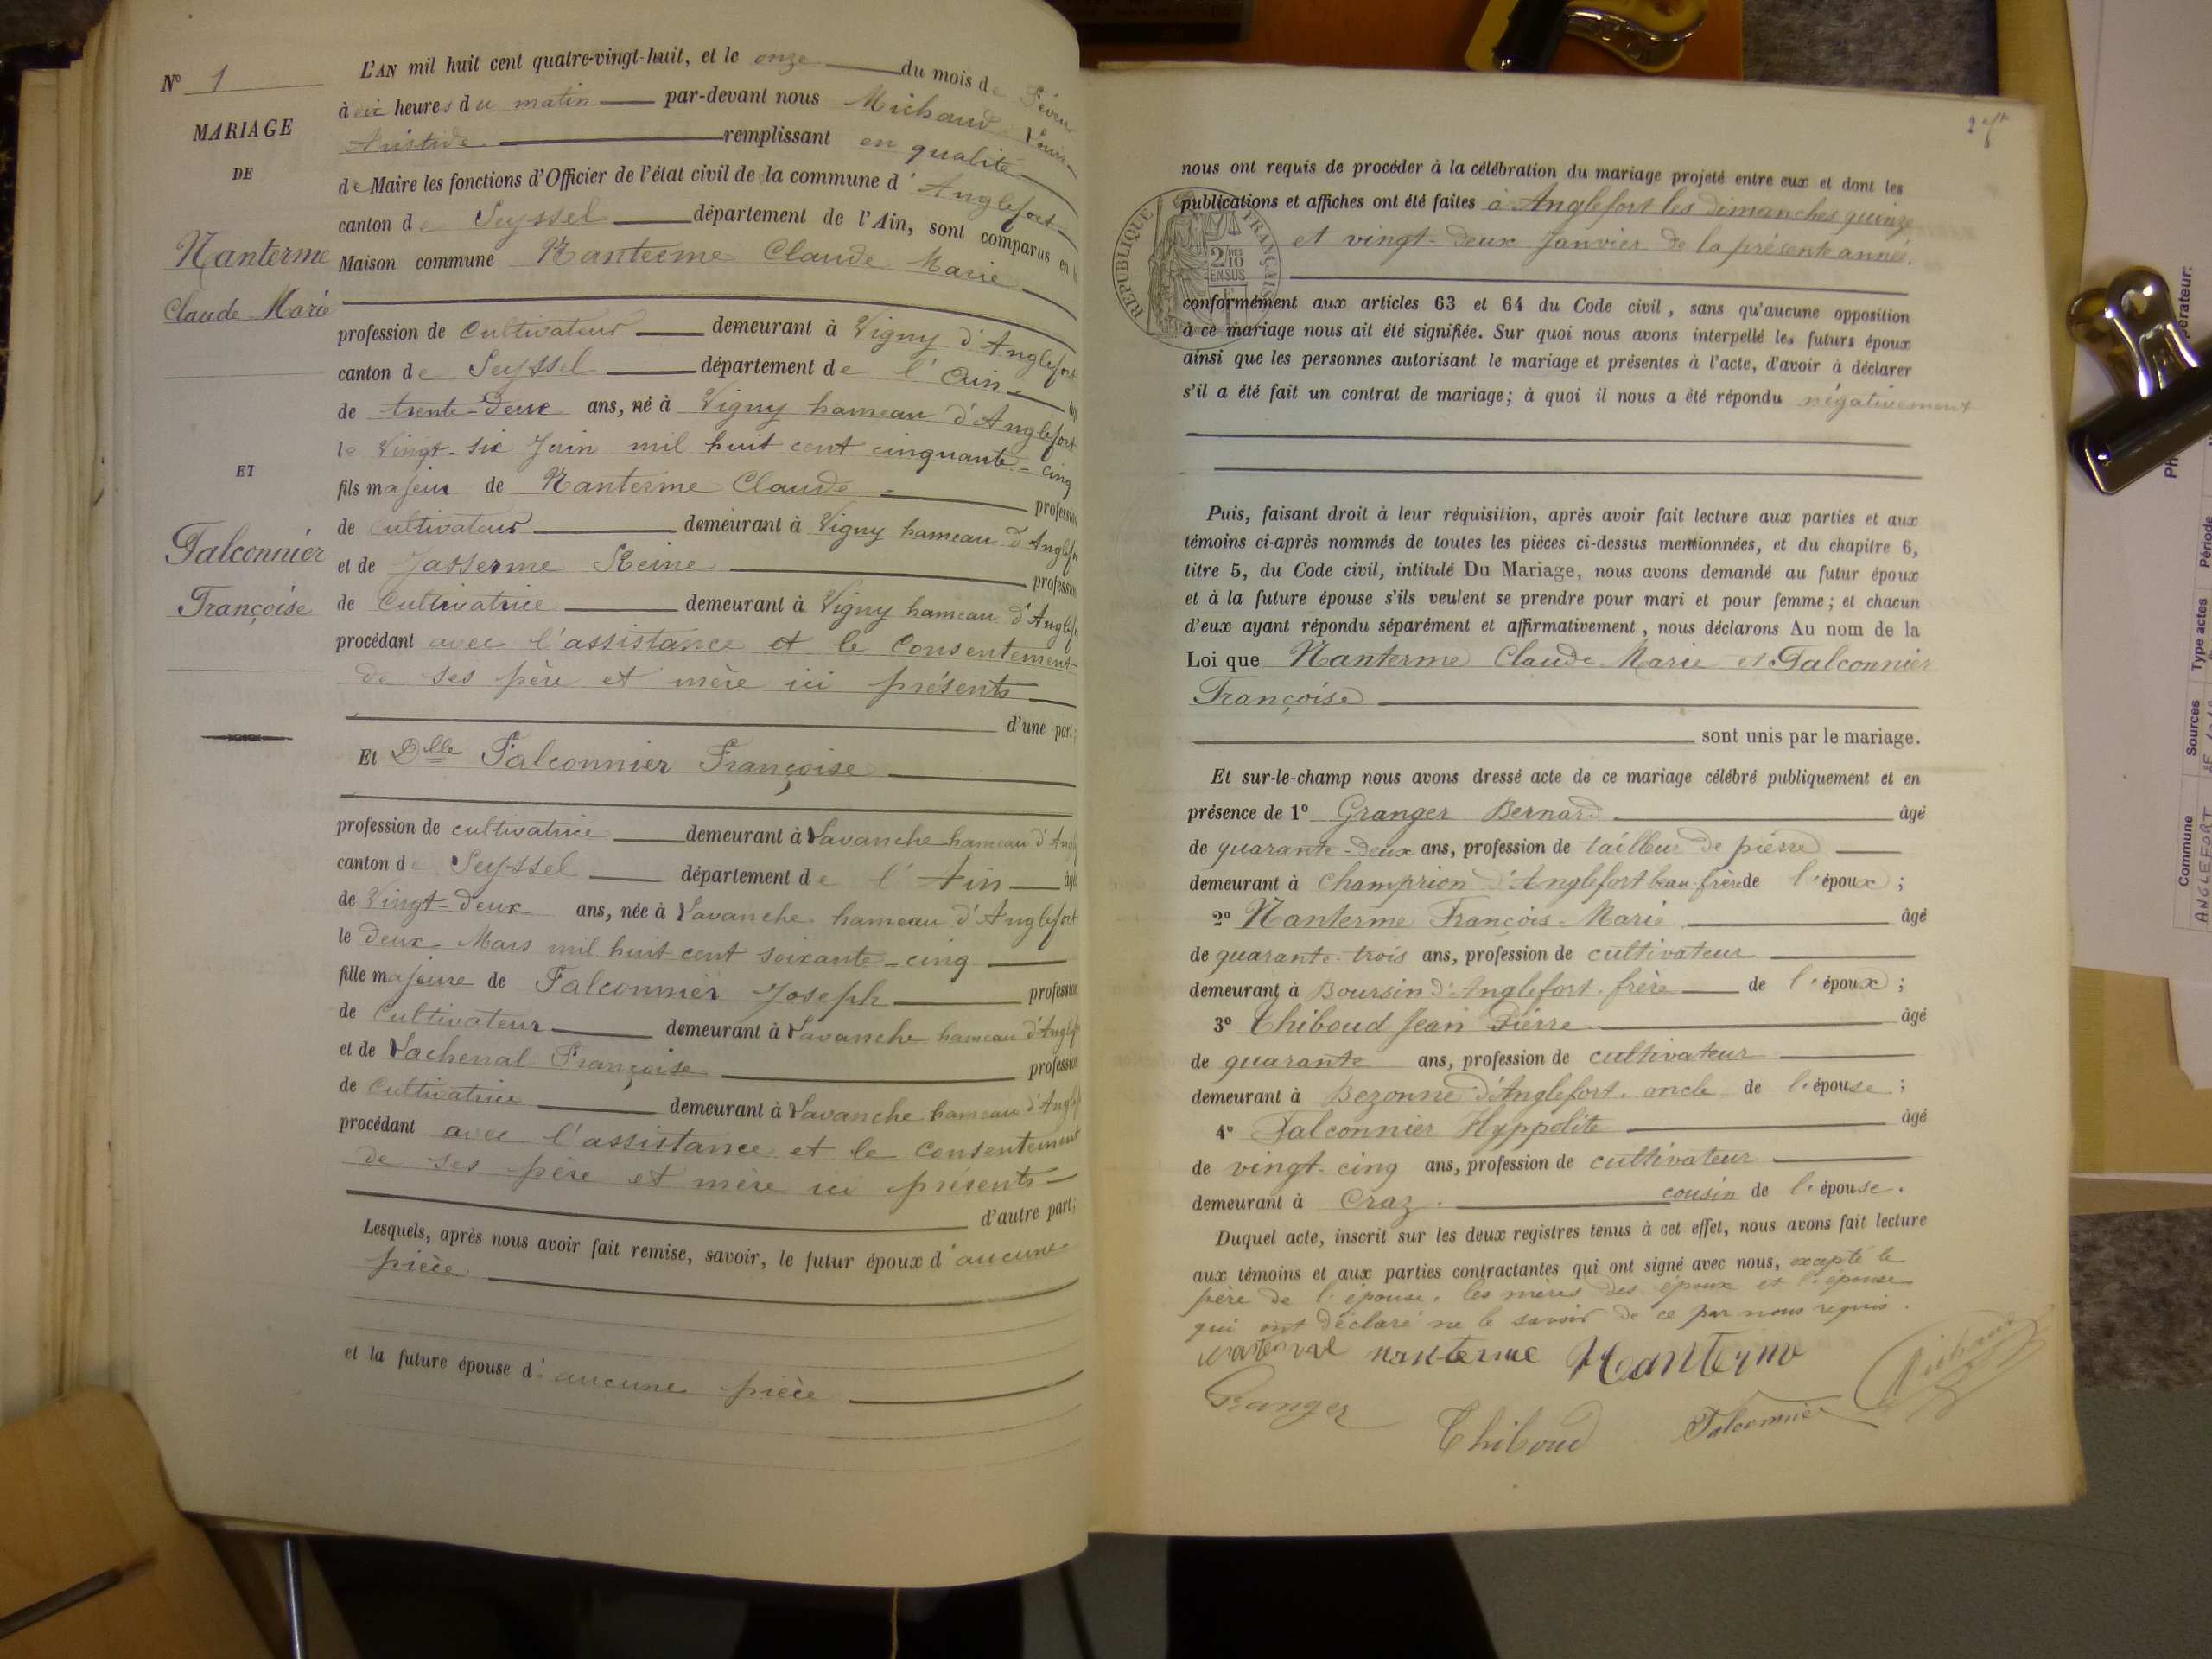 N° 1
MARIAGE
DE
Nanterme
Claude Marie
ET
Falconnier
Françoise
L'AN mil huit cent quatre-vingt-huit, et le onze du mois de
à dix heures du matin par-devant nous Michaud Louis
Aristide remplissant en qualité
de Maire les fonctions d'Officier de l'état civil de la commune d'Anglefort
canton de Seyssel département de l'Ain, sont comparus en la
Maison commune Nanterme Claude Marie
profession de Cultivateur demeurant à Vigny d'Anglefort
canton de Seyssel département de l'Ain
de trente-deux ans, né à Vigny hameau d'Anglefort
le Vingt-six Juin mil huit cent cinquante-cinq
fils majeur de Nanterme Claude profession
de cultivateur demeurant à Vigny hameau d'Anglefor
et de Jasserme Reine profession
de Cultivatrice demeurant à Vigny hameau d'Anglef
procédant avec l'assistance et le consentement
de ses père et mère ici présents
d'une part;
Et Dlle Falconnier Françoise
profession de cultivatrice demeurant à Lavanche hameau d'Angl
canton de Seyssel département de l'Ain âgé
de Vingt-deux ans, née à Lavanche hameau d'Anglefort
le deux Mars mil huit cent soixante-cinq
fille majeure de Falconnier Joseph profession
de Cultivateur demeurant à Lavanche hameau d'Anglef
et de Lachenal Françoise profession
de Cultivatrice demeurant à Lavanche hameau d'Anglef
procédant avec l'assistance et le consentement
de ses père et mère ici présents
d'autre part;
Lesquels, après nous avoir fait remise, savoir, le futur époux d'aucune
pièce
et la future épouse d'aucune pièce
nous ont requis de procéder à la célébration du mariage projeté entre eux et dont les
publications et affiches ont été faites à Anglefort les dimanches quinze
et vingt-deux Janvier de la présente année.
RÉPUBLIQUE FRANÇAISE
2/10 EN SUS
conformément aux articles 63 et 64 du Code civil, sans qu'aucune opposition
à ce mariage nous ait été signifiée. Sur quoi nous avons interpellé les futurs époux
ainsi que les personnes autorisant le mariage et présentes à l'acte, d'avoir à déclarer
s'il a été fait un contrat de mariage; à quoi il nous a été répondu négativement
Puis, faisant droit à leur réquisition, après avoir fait lecture aux parties et aux
témoins ci-après nommés de toutes les pièces ci-dessus mentionnées, et du chapitre 6,
titre 5, du Code civil, intitulé Du Mariage, nous avons demandé au futur époux
et à la future épouse s'ils veulent se prendre pour mari et pour femme; et chacun
d'eux ayant répondu séparément et affirmativement, nous déclarons Au nom de la
Loi que Nanterme Claude Marie et Falconnier
Françoise
sont unis par le mariage.
Et sur-le-champ nous avons dressé acte de ce mariage célébré publiquement et en
présence de 1° Granger Bernard âgé
de quarante-deux ans, profession de tailleur de pierre
demeurant à Champrion d'Anglefort beau-frère de l'époux;
2° Nanterme François-Marie âgé
de quarante-trois ans, profession de cultivateur
demeurant à Boursin d'Anglefort. frère de l'époux;
3° Thiboud Jean Pierre âgé
de quarante ans, profession de cultivateur
demeurant à Bezonne d'Anglefort. oncle de l'épouse;
4° Falconnier Hyppolite âgé
de vingt-cinq ans, profession de cultivateur
demeurant à Craz. cousin de l'épouse.
Duquel acte, inscrit sur les deux registres tenus à cet effet, nous avons fait lecture
aux témoins et aux parties contractantes qui ont signé avec nous, excepté le
père de l'épouse, les mères des époux et l'épouse
qui ont déclaré ne le savoir de ce par nous requis.
nanterme Nanterme
Granger Thiboud Falconnier Michaud
Commune Sources Type actes Période
ANGLEFORT